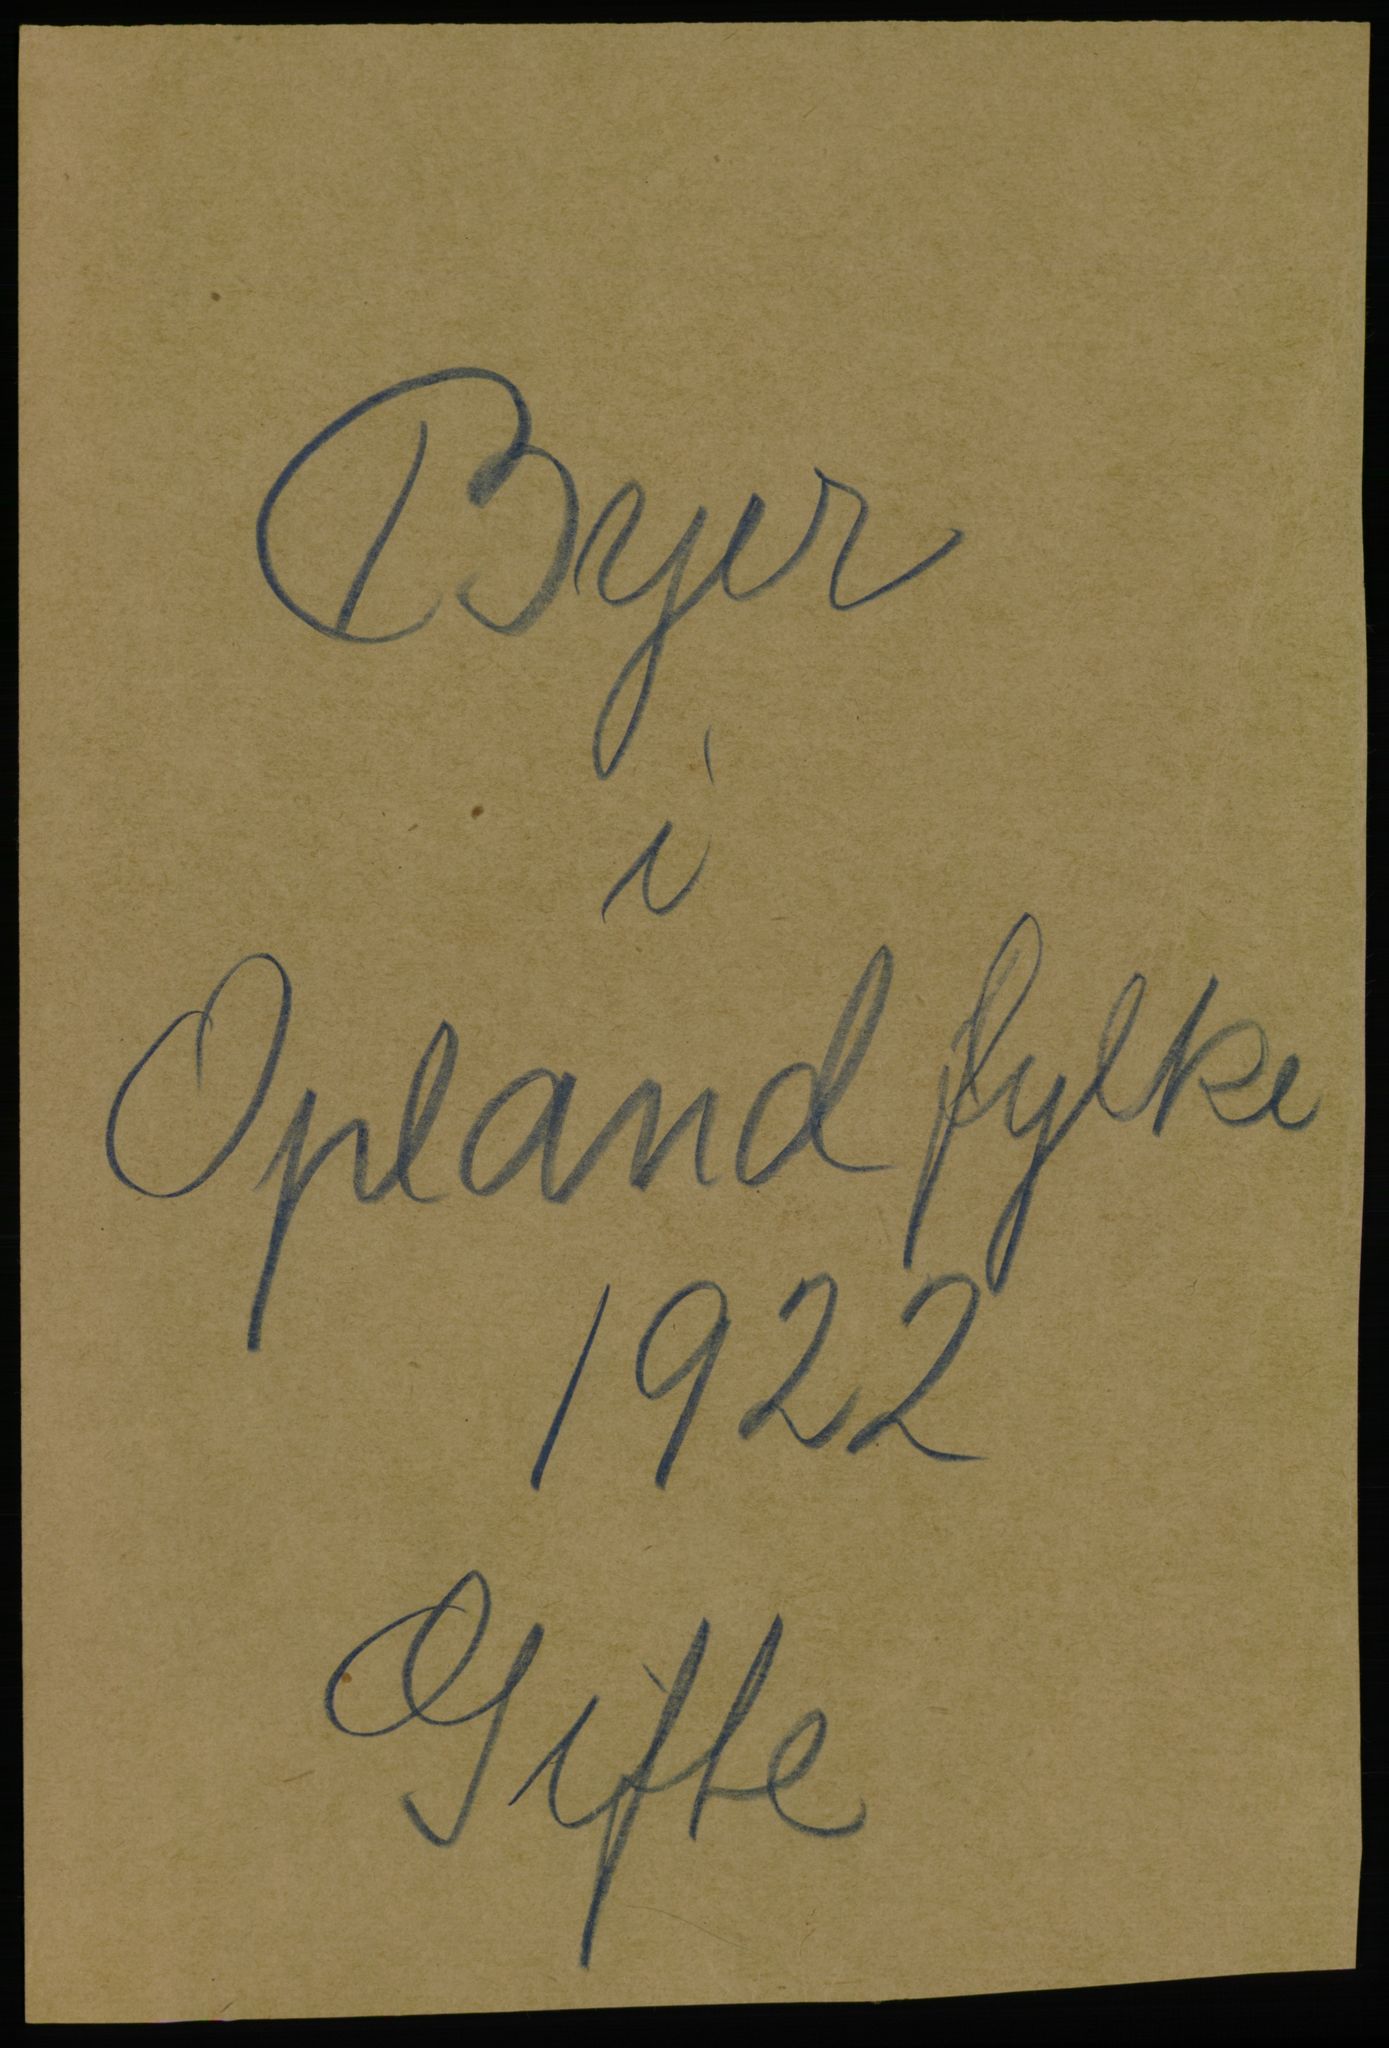 Byer
i
Opland fylke
1922
Gifte